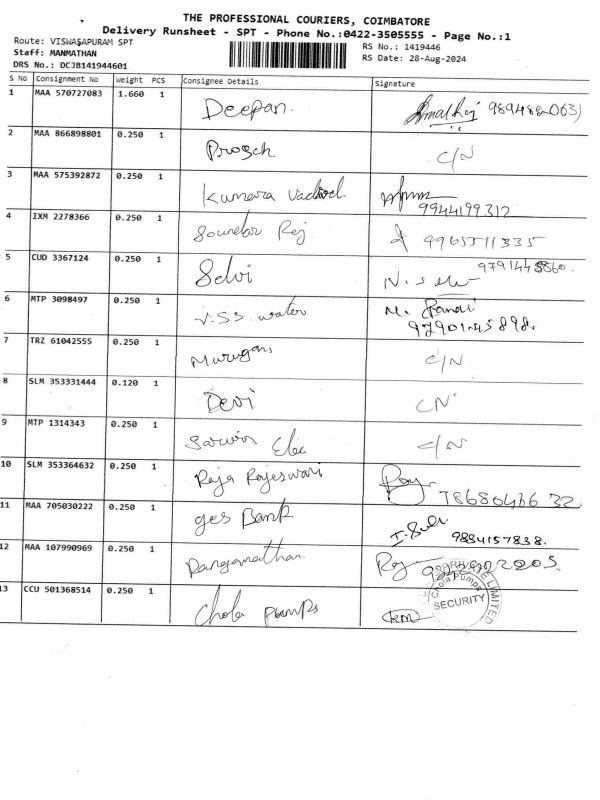 THE PROFESSIONAL COURIERS, COIMBATORE
Delivery Runsheet - SPT - Phone No.:0422-3505555 - Page No.:1
Route: VISWASAPURAM SPT
Staff: MANMATHAN
DRS No.: DCJB141944601
RS No.: 1419446
RS Date: 28-Aug-2024
S No Consignment No Weight PCS Consignee Details Signature
1 MAA 570727083 1.660 1 Deepan
2 MAA 866898801 0.250 1 C/N
3 MAA 575392872 0.250 1 Kumara
9944199312
4 IXM 2278366 0.250 1 Soundar Raj
5 CUD 3367124 0.250 1 Selvi
6 MTP 3098497 0.250 1 V.S.S. water
7 TRZ 61042555 0.250 1 Murugan C/N
8 SLM 353331444 0.120 1 Devi CN
9 MTP 1314343 0.250 1 Elec C/N
10 SLM 353364632 0.250 1 Raja Rajeswari
11 MAA 705030222 0.250 1 ges Bank
9884157838.
12 MAA 107990969 0.250 1 Ranganathan
13 CCU 501368514 0.250 1 Chola pumps
Chola Pumps PRIVATE LIMITED
SECURITY